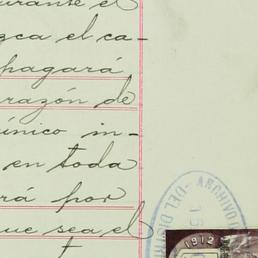 durante el
zca el ca-
pagará
razón de
único in-
en toda
rá por
que sea el
ARCHIVO
DEL DISTRI
15
1912